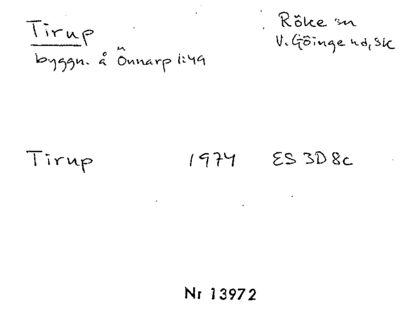 Tirup
byggn. å Önnarp 1:49
Röke sn
V. Göinge hd, Sk
Tirup 1974 ES 3D8c
Nr 13972